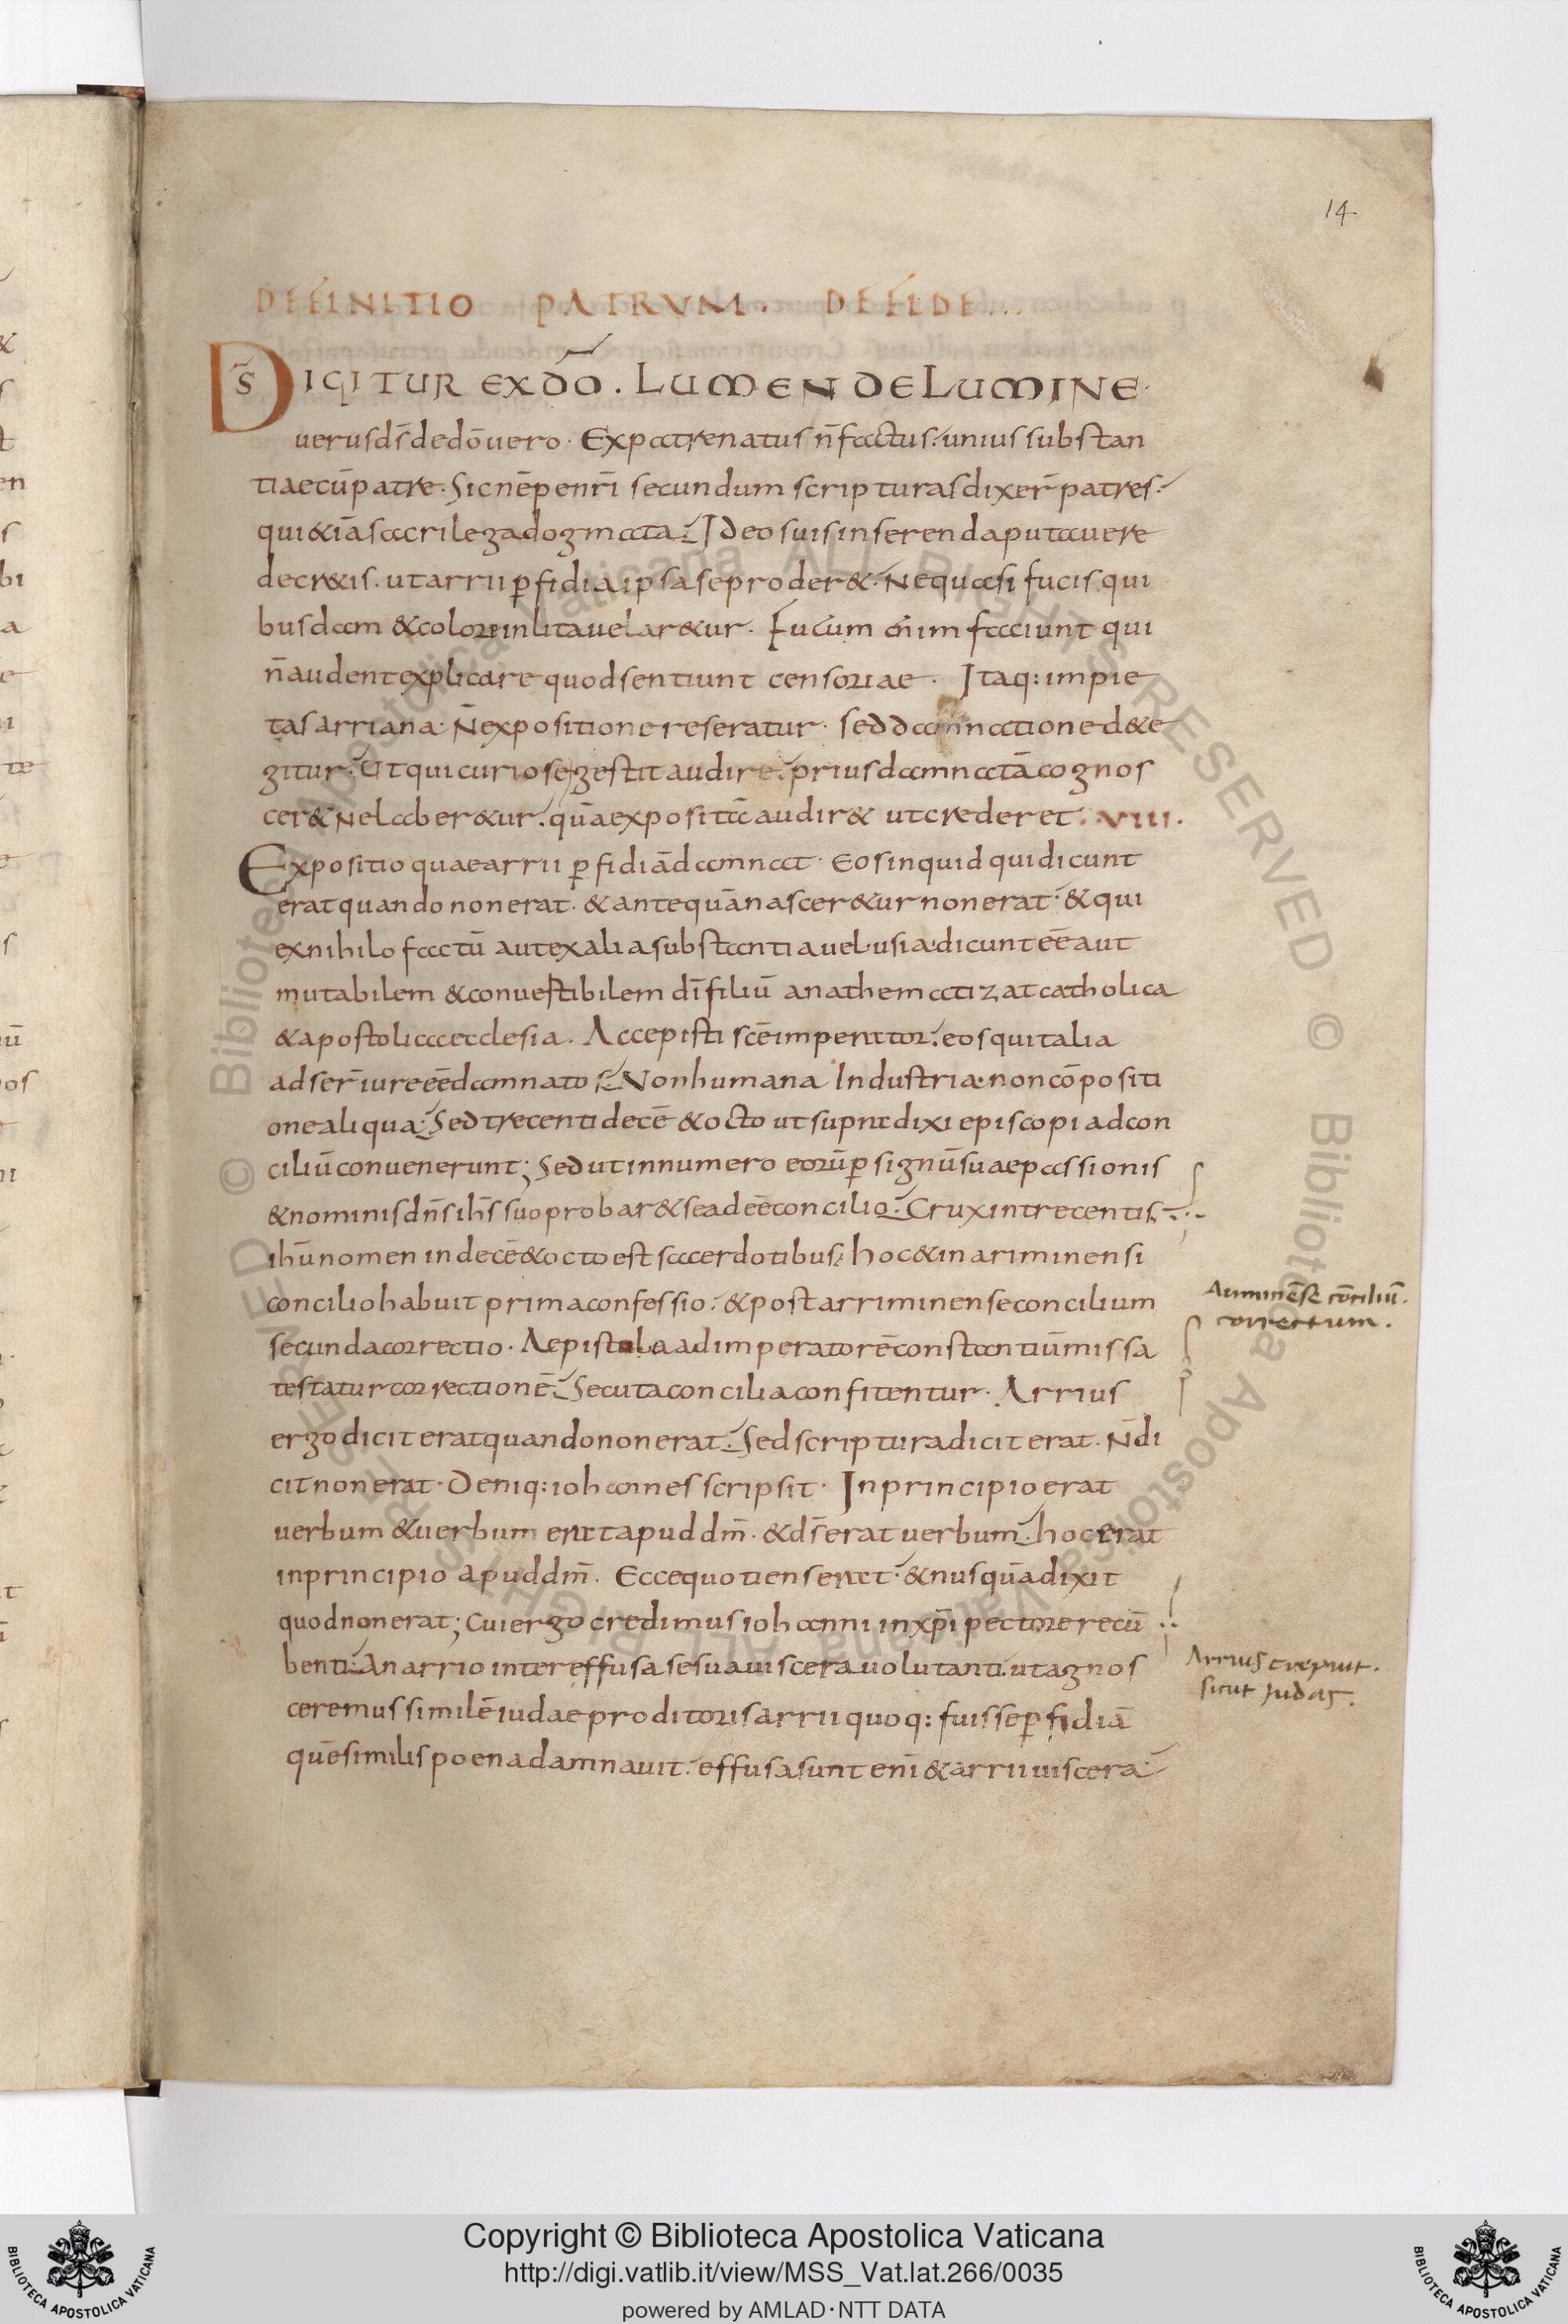 14
DEFINITIO PATRVM. DE FIDE...
Ds̄ IGITUR EX DŌ. LUMEN DE LUMINE.
uerus ds̄ de dō uero. Ex patre natus n̄ factus. unius substan
tiae cū patre. Sic nēpe nr̄i secundum scripturas dixer̄ patres.
qui & iā sacrilega dogmata. Ideo suis inserenda putauere
decr&is. ut arrii ꝑfidia ipsa se proder&. Ne quasi fucis qui
busdam & colore inlita uelar&ur. Fucum enim faciunt qui
n̄ audent explicare quod sentiunt censoriae. Itaq: impie
tas arriana. N̄ expositione reseratur. sed damnatione d&e
gitur. Ut qui curiose gestit audire. prius damnatā cognos
cer& ne laber&ur. quā expositā audir& ut crederet. VIII.
Expositio quae arrii ꝑfidiā damnat. Eos inquid qui dicunt
erat quando non erat. & ante quā nascer&ur non erat. & qui
ex nihilo factū aut ex alia substantia uel usia dicunt eē aut
mutabilem & conuestibilem dī filiū anathematizat catholica
& apostolica ecclesia. Accepisti scē imperator. eos qui talia
adser̄ iure eē damnatos. Non humana Industria. non cōpositi
one aliqua. Sed trecenti decē & octo ut supra dixi episcopi ad con
ciliū conuenerunt; Sed ut in numero eorū ꝑ signū suae passionis
& nominis dn̄s ih̄s suo probar& se adeē concilio. Crux in trecentis.
ihū nomen in decē & octo est sacerdotibus. hoc & in ariminensi
concilio habuit prima confessio. & post arriminense concilium
secunda correctio. A epistula ad imperatorē constantiū missa
testatur correctionē. Secuta concilia confitentur. Arrius
ergo dicit erat quando non erat. Sed scriptura dicit erat. N̄ di
cit non erat. Deniq: iohannes scripsit. In principio erat
uerbum & uerbum erat apud dm̄. & ds̄ erat uerbum. hoc erat
in principio apud dm̄. Ecce quotiens erat. & nusquā dixit
quod non erat; Cui ergo credimus iohanni in xp̄i pectore recū
benti. An arrio inter effusa se sua uiscera uolutanti. ut agnos
ceremus similē iudae proditoris arrii quoq: fuisse ꝑfidiā
quē similis poena damnauit. effusa sunt enī & arrii uiscera
Ariminēse cōciliū.
correctum.
Arrius crepuit.
sicut Iudas.
© Biblioteca Apostolica Vaticana ALL RIGHTS RESERVED © Biblioteca Apostolica Vaticana ALL RIGHTS RESERVED
Copyright © Biblioteca Apostolica Vaticana
http://digi.vatlib.it/view/MSS_Vat.lat.266/0035
powered by AMLAD·NTT DATA
BIBLIOTECA APOSTOLICA VATICANA
BIBLIOTECA APOSTOLICA VATICANA